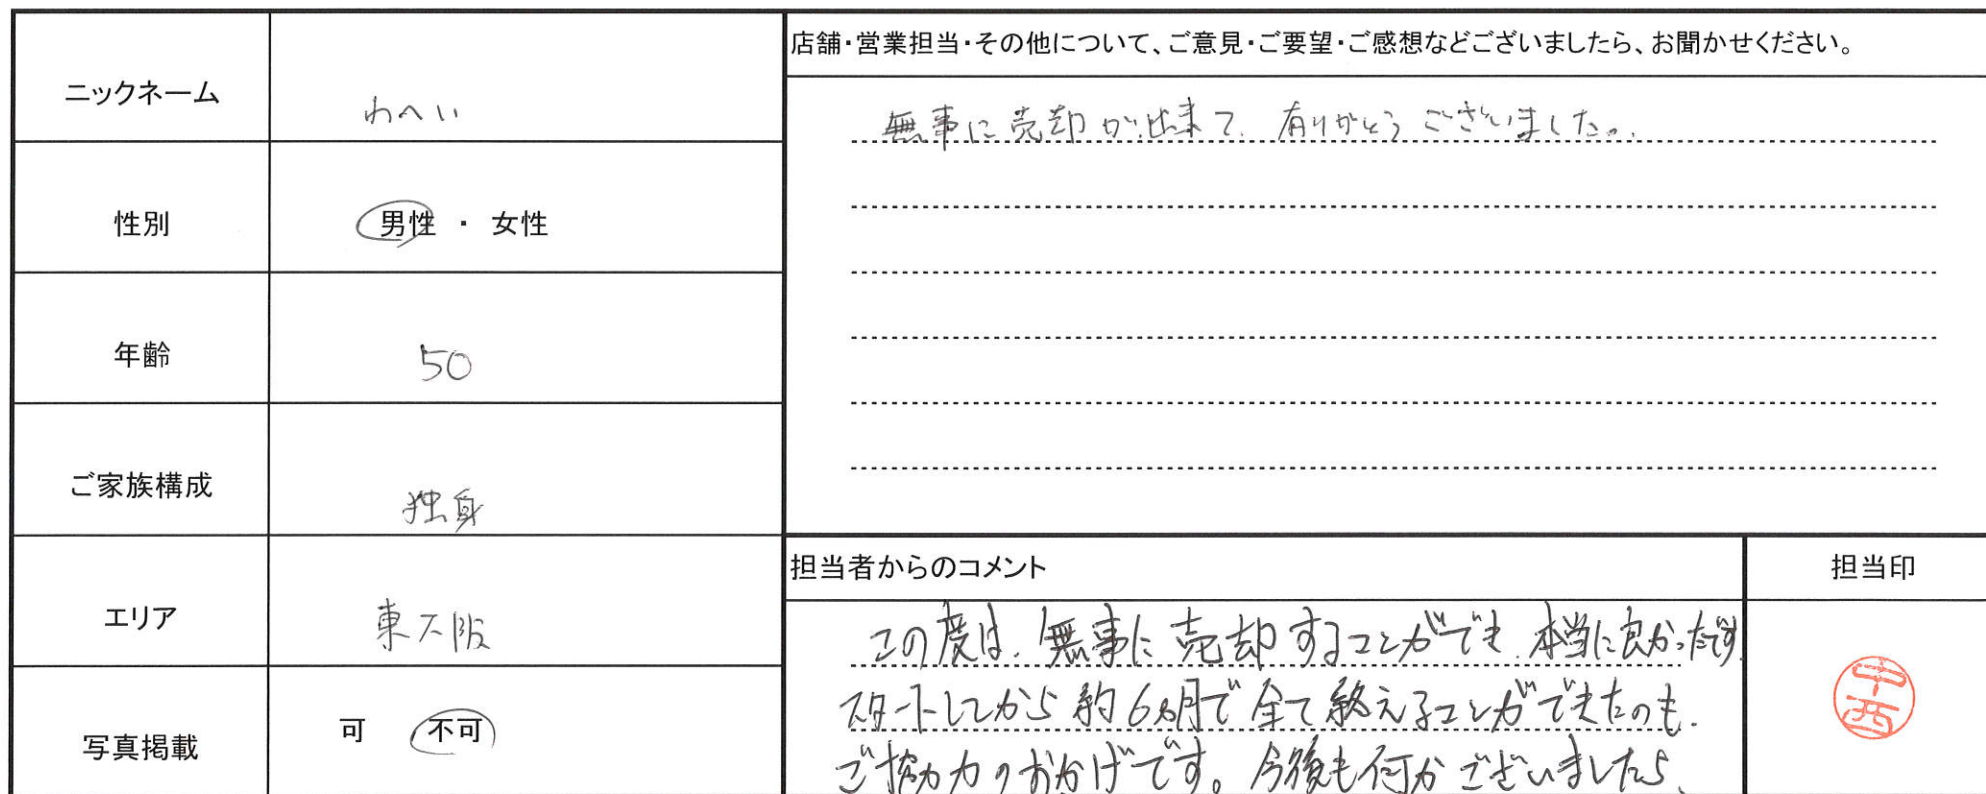 ニックネーム
わへい
性別
男性 ・ 女性
年齢
50
ご家族構成
独身
エリア
東大阪
写真掲載
可 不可
店舗・営業担当・その他について、ご意見・ご要望・ご感想などございましたら、お聞かせください。
無事に売却が出来て、有りがとうございました。
担当者からのコメント
この度は、無事に売却することができ、本当に良かったです。
スタートしてから約6ヵ月で全て終えることができたのも、
ご協力のおかげです。今後も何かございましたら、
担当印
中西